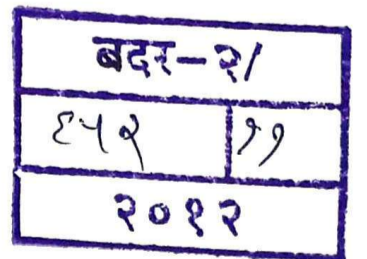 बदर-२/
६५२ ११
२०१२